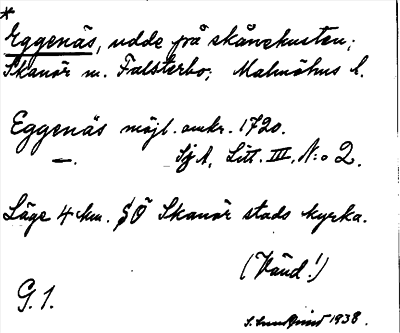 *
Eggenäs, udde på skånekusten;
Skanör m. Falsterbo, Malmöhus l.
Eggenäs möjl. omkr. 1720.
—. SjA, Litt. III, N:o 2.
Läge 4 km. SÖ Skanör stads kyrka.
(Vänd!)
G. 1.
S. Lundqvist 1938.